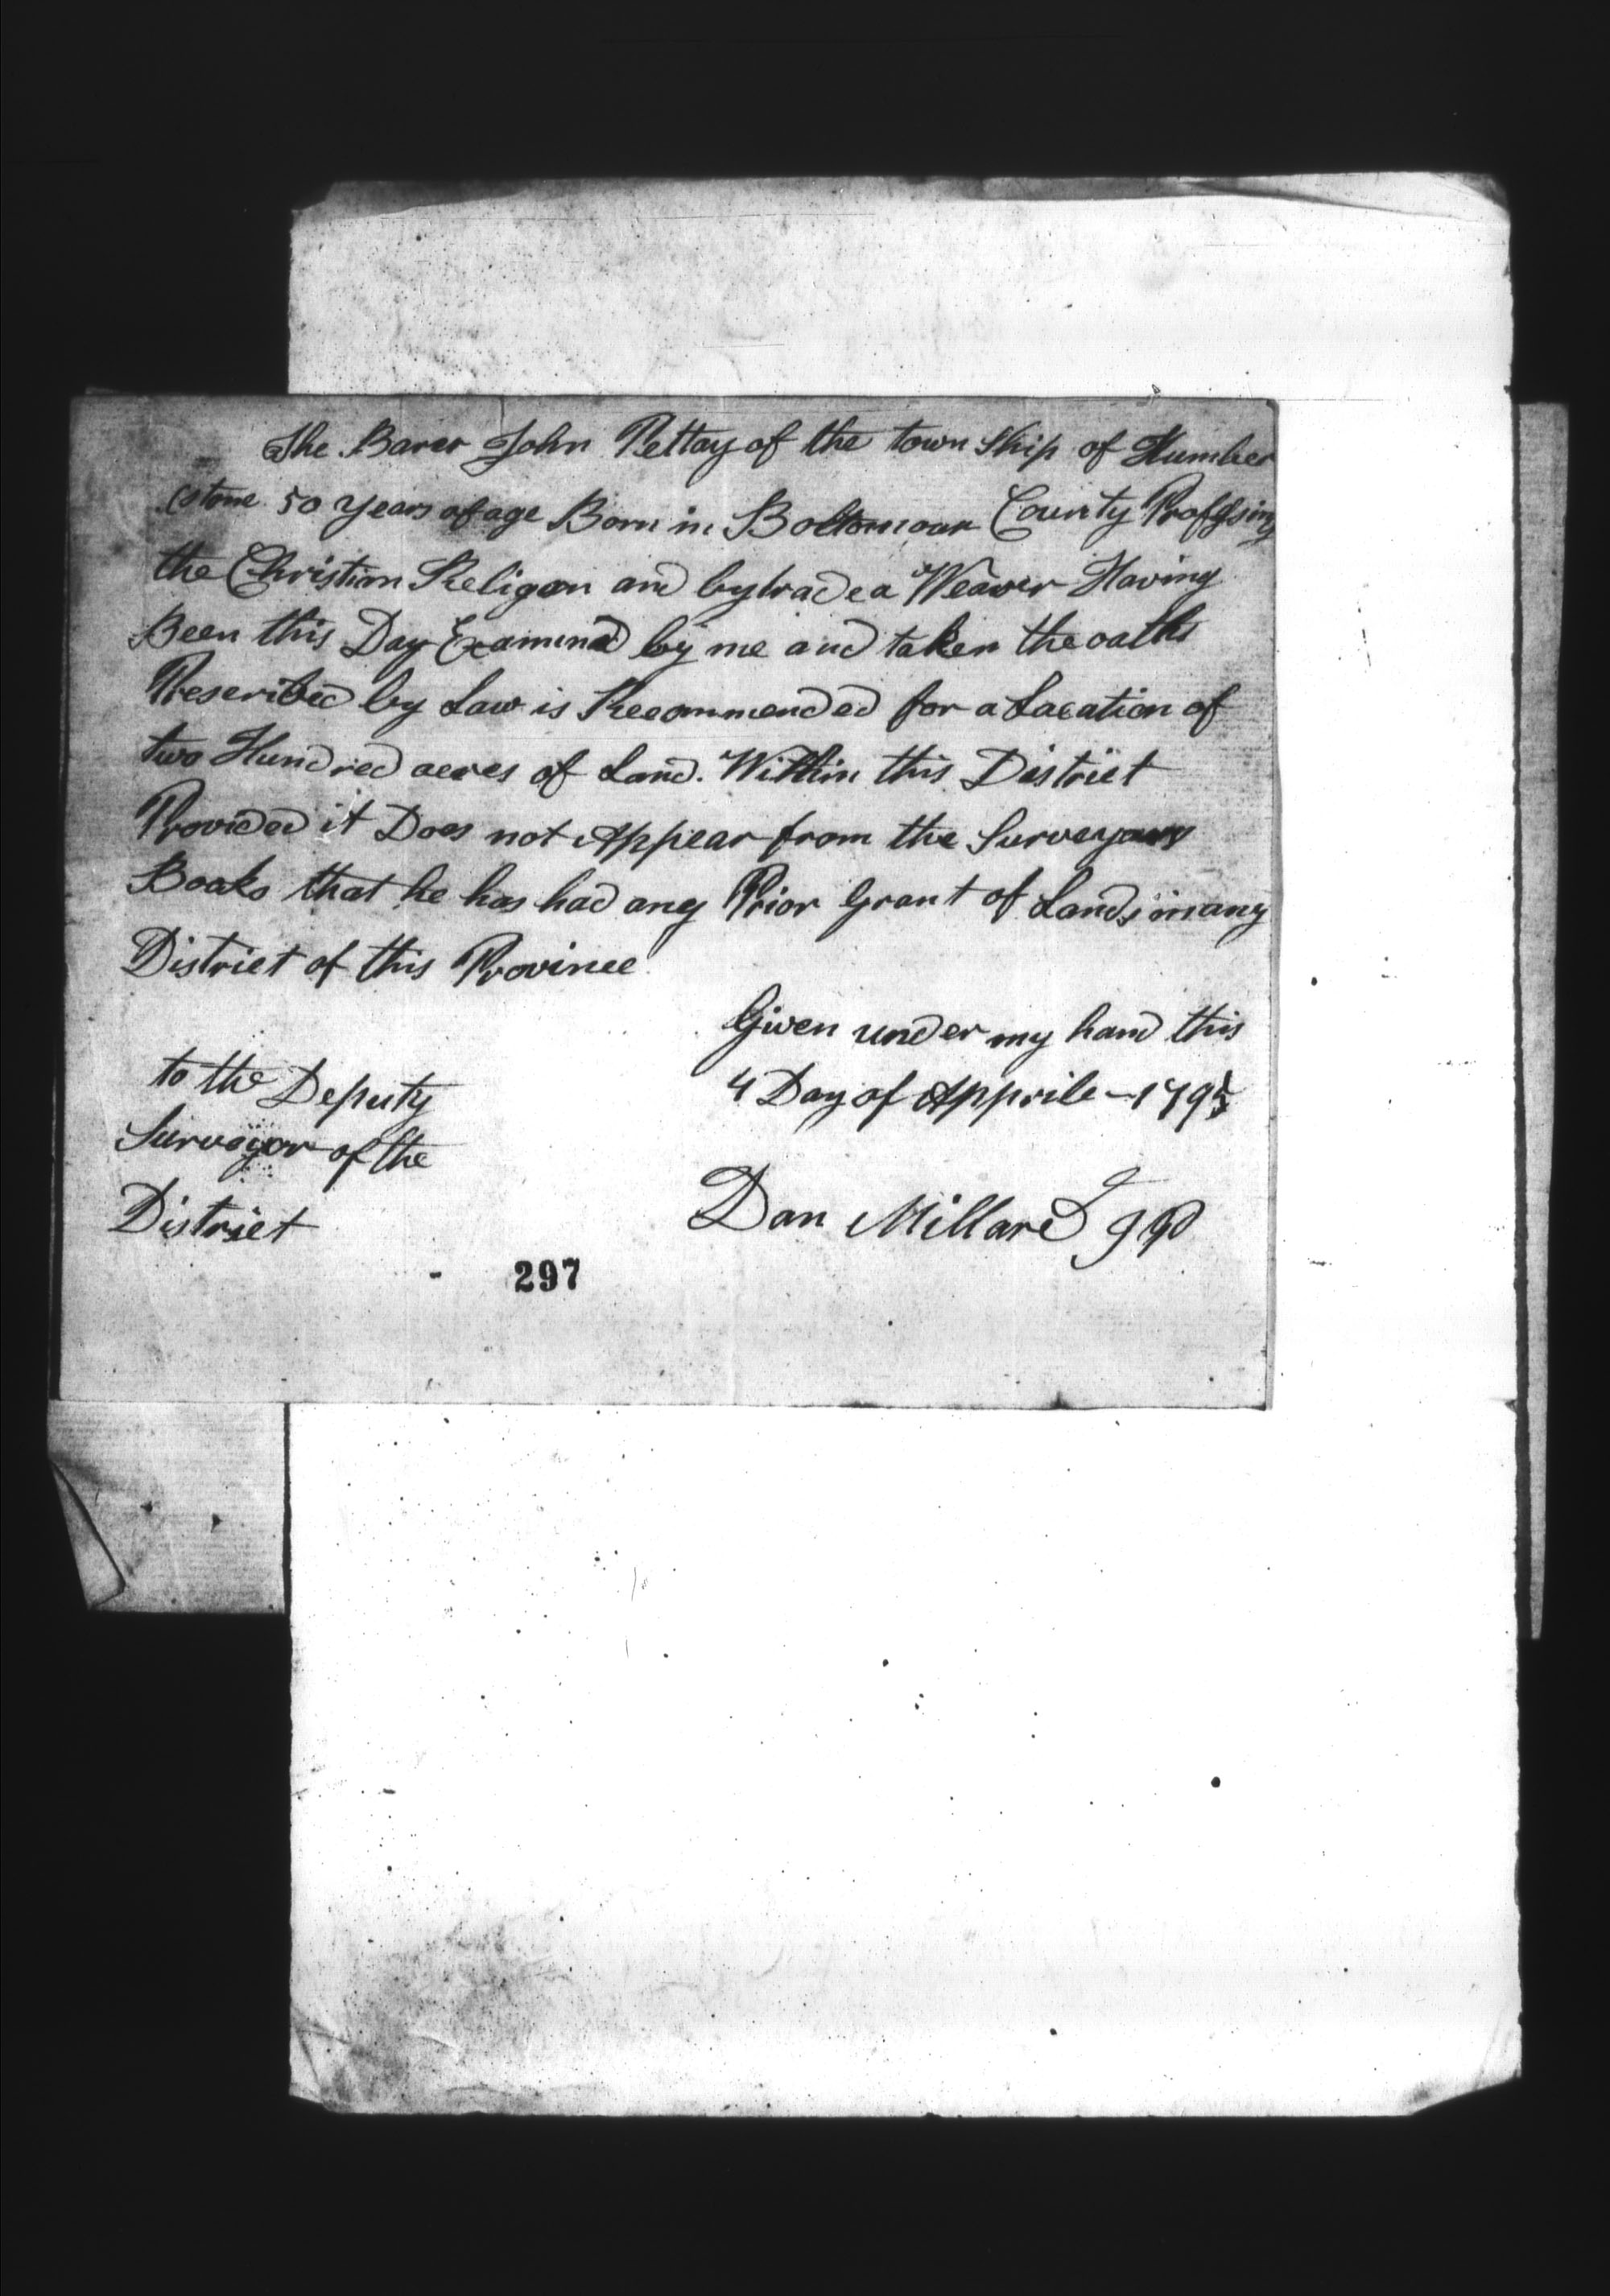 The Barer John Pettay of the town Ship of Humber
stone 50 years of age Born in Boltomoar County Professing
the Christian Religon and by trade a Weaver Having
Been this Day Examined by me and taken the oaths
Prescribed by Law is Recommended for a Location of
two Hundred acres of Land. Within this District
Provided it Does not Appear from the Surveyours
Books that he has had any Prior Grant of Lands in any
District of this Province
Given under my hand this
4 Day of Apprile - 1795
to the Deputy
Surveyor of the
District
Dan Millard JP
297